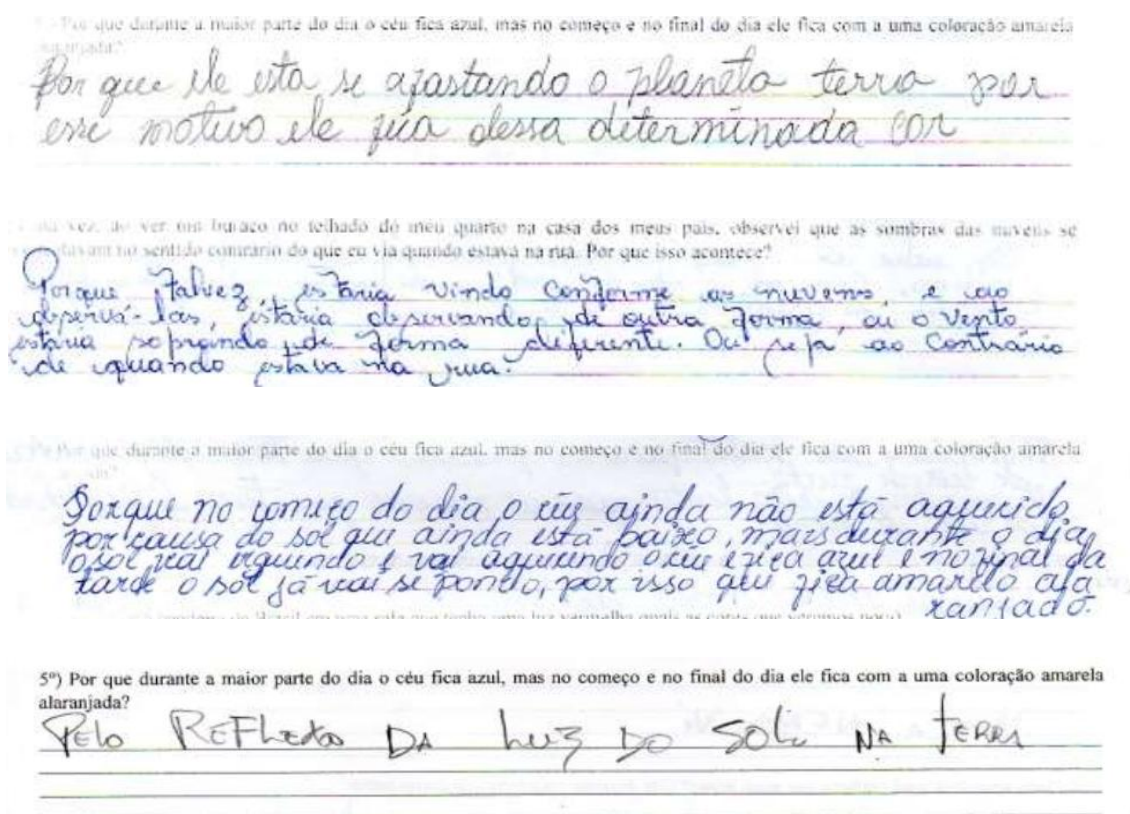 Por que durante a maior parte do dia o céu fica azul, mas no começo e no final do dia ele fica com a uma coloração amarela
alaranjada?
Por que ele esta se afastando o planeta terra por
esse motivo ele fica dessa determinada cor
vez, ao ver um buraco no telhado do meu quarto na casa dos meus pais, observei que as sombras das nuvens se
no sentido contrário do que eu via quando estava na rua. Por que isso acontece?
Porque talvez, estaria vindo conforme as nuvens, e ao
observá-las, estaria observando de outra forma, ou o vento
estaria soprando de forma deferente. Ou seja ao contrário
de quando estava na rua.
Por que durante a maior parte do dia o céu fica azul, mas no começo e no final do dia ele fica com a uma coloração amarela
Porque no começo do dia o céu ainda não está aquecido
por causa do sol que ainda está baixo, mais durante o dia
o sol vai erguendo e vai aquecendo o céu e fica azul e no final da
tarde o sol já vai se pondo, por isso que fica amarelo ala
ranjado.
do Brasil em uma sala que tenha uma luz vermelha quais as cores que veremos
5º) Por que durante a maior parte do dia o céu fica azul, mas no começo e no final do dia ele fica com a uma coloração amarela
alaranjada?
PELO REFLEXO DA LUZ DO SOL NA TERRA